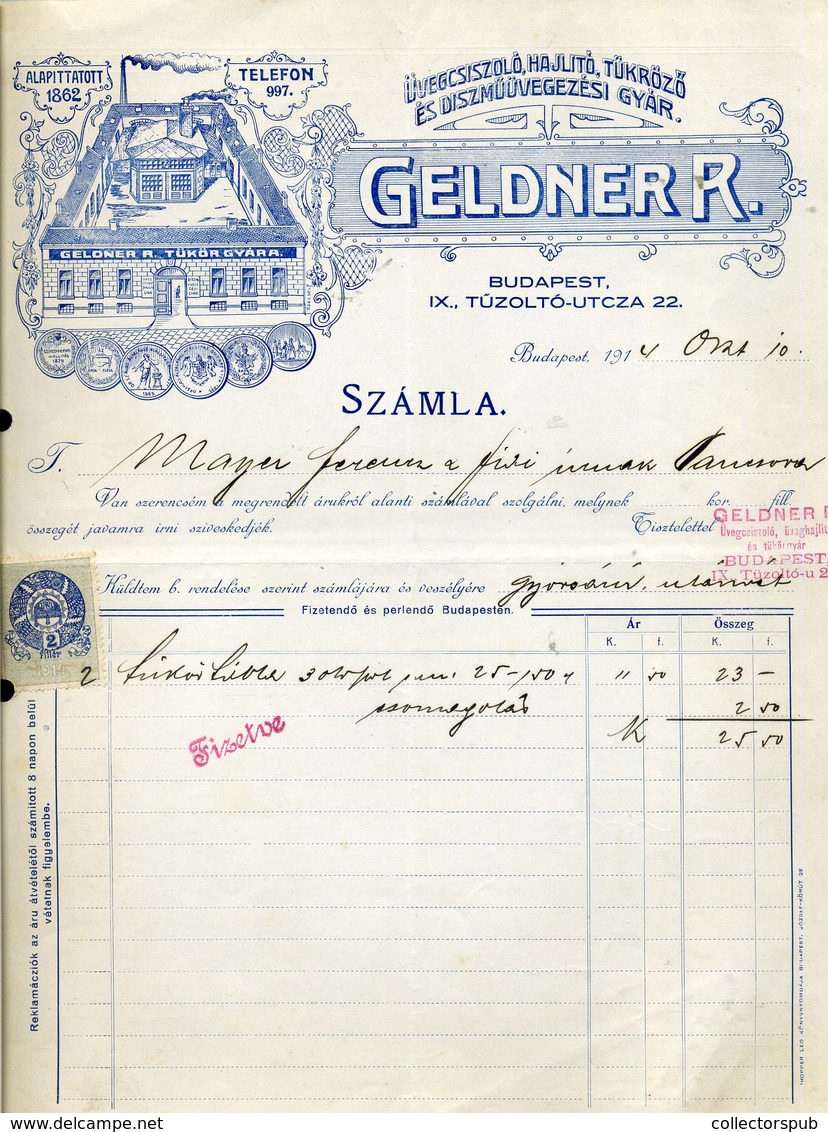 ALAPITTATOTT
1862
TELEFON
997.
ÜVEGCSISZOLÓ, HAJLITÓ, TÜKRÖZŐ
ÉS DISZMŰÜVEGEZÉSI GYÁR.
GELDNER R.
GELDNER R. TÜKÖR GYÁRA.
BUDAPEST,
IX., TŰZOLTÓ-UTCZA 22.
Budapest, 1914 Okt 10.
SZÁMLA.
T. Mayer Ferencz & fiai úrnak Pancsova
Van szerencsém a megrendelt árukról alanti számlával szolgálni, melynek kor. fill.
összegét javamra irni sziveskedjék. Tisztelettel
GELDNER R
Üvegcsiszoló, üveghajlit
és tükörgyár
BUDAPEST,
IX. Tűzoltó-u 2
Küldtem b. rendelése szerint számlájára és veszélyére gyorsáru. utánvét
Fizetendő és perlendő Budapesten.
Ár Összeg
K. f. K. f.
2 fillér
1914
2 25-150 11 50 23 —
csomagolás 2 50
K 25 50
Fizetve
Reklamácziók az áru átvételétől számitott 8 napon belül
vétetnak figyelembe.
HOPPER LEO KÖNYVNYOMDÁJA BUDAPEST, JÓZSEF-KÖRÚT 26
collectorspub